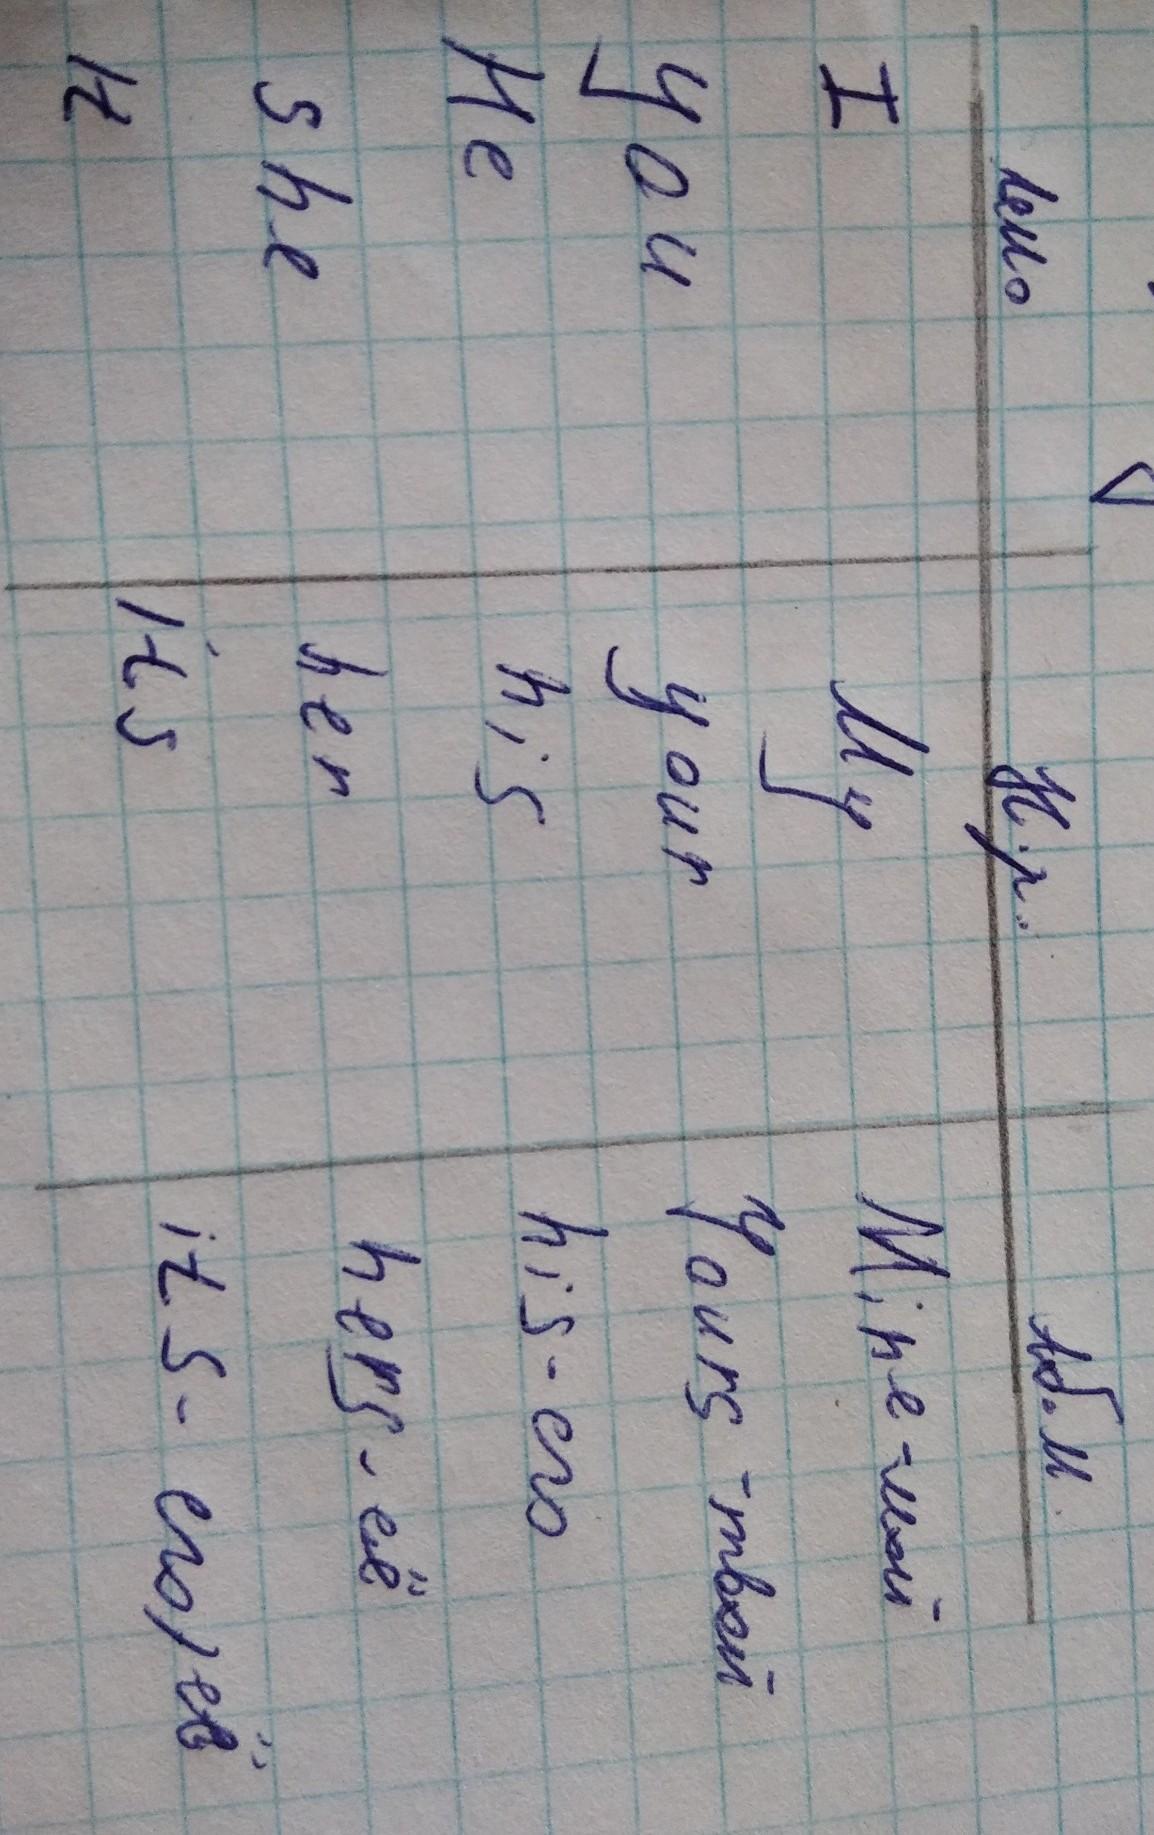 I My Mine - мой
you your Yours - твой
He his his - его
she her hers - её
it its its - его/её